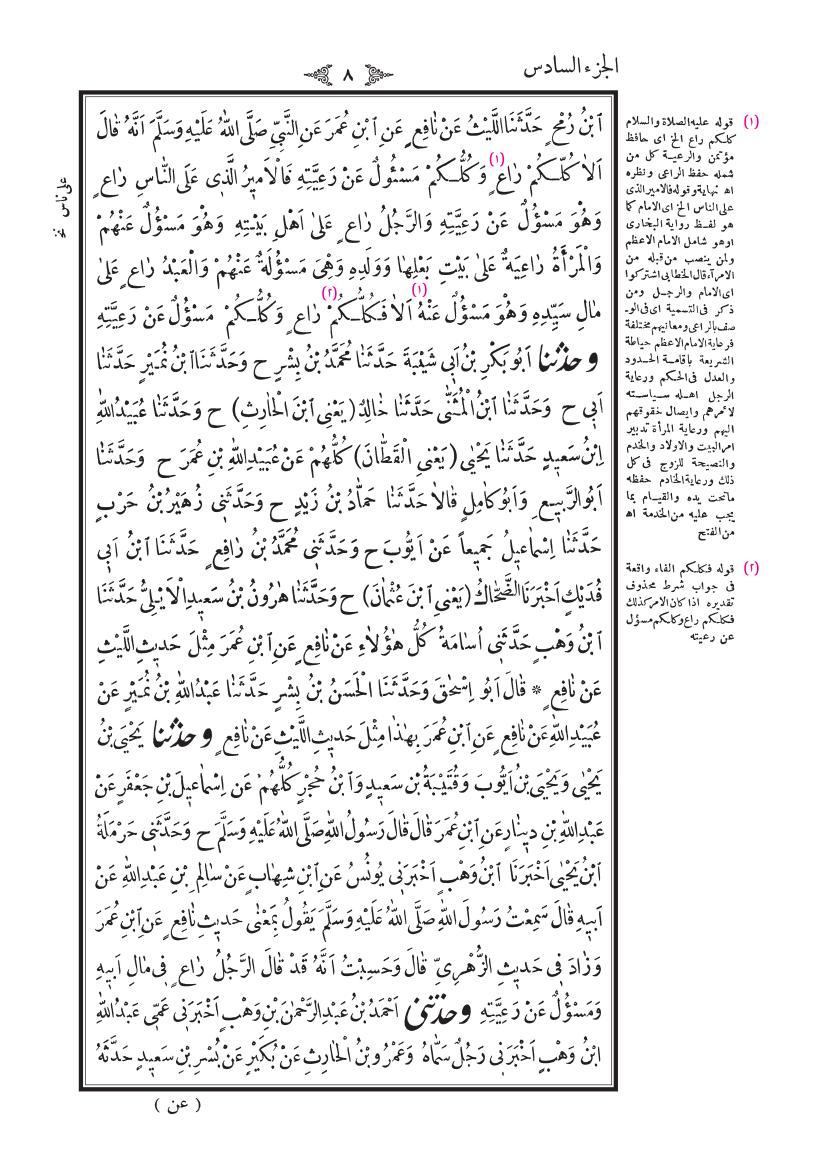 الجزء السادس
٨
ابْنُ رُمْحٍ حَدَّثَنَا اللَّيْثُ عَنْ نَافِعٍ عَنِ ابْنِ عُمَرَ عَنِ النَّبِيِّ صَلَّى اللهُ عَلَيْهِ وَسَلَّمَ اَنَّهُ قَالَ
اَلَا كُلُّكُمْ رَاعٍ (١) وَكُلُّكُمْ مَسْؤُلٌ عَنْ رَعِيَّتِهِ فَالْاَمِيرُ الَّذِي عَلَى النَّاسِ رَاعٍ
وَهُوَ مَسْؤُلٌ عَنْ رَعِيَّتِهِ وَالرَّجُلُ رَاعٍ عَلَى اَهْلِ بَيْتِهِ وَهُوَ مَسْؤُلٌ عَنْهُمْ
وَالْمَرْأَةُ رَاعِيَةٌ عَلَى بَيْتِ بَعْلِهَا وَوَلَدِهِ وَهِيَ مَسْؤُلَةٌ عَنْهُمْ وَالْعَبْدُ رَاعٍ عَلَى
مَالِ سَيِّدِهِ وَهُوَ مَسْؤُلٌ عَنْهُ (١) اَلَا فَكُلُّكُمْ (٢) رَاعٍ وَكُلُّكُمْ مَسْؤُلٌ عَنْ رَعِيَّتِهِ
وحدثنا اَبُو بَكْرِ بْنُ اَبِي شَيْبَةَ حَدَّثَنَا مُحَمَّدُ بْنُ بِشْرٍ ح وَحَدَّثَنَا ابْنُ نُمَيْرٍ حَدَّثَنَا
اَبِي ح وَحَدَّثَنَا ابْنُ الْمُثَنَّى حَدَّثَنَا خَالِدٌ (يَعْنِي ابْنَ الْحَارِثِ) ح وَحَدَّثَنَا عُبَيْدُ اللهِ
ابْنُ سَعِيدٍ حَدَّثَنَا يَحْيَى (يَعْنِي الْقَطَّانَ) كُلُّهُمْ عَنْ عُبَيْدِ اللهِ بْنِ عُمَرَ ح وَحَدَّثَنَا
اَبُو الرَّبِيعِ وَاَبُو كَامِلٍ قَالَا حَدَّثَنَا حَمَّادُ بْنُ زَيْدٍ ح وَحَدَّثَنِي زُهَيْرُ بْنُ حَرْبٍ
حَدَّثَنَا اِسْمَاعِيلُ جَمِيعاً عَنْ اَيُّوبَ ح وَحَدَّثَنِي مُحَمَّدُ بْنُ رَافِعٍ حَدَّثَنَا ابْنُ اَبِي
فُدَيْكٍ اَخْبَرَنَا الضَّحَّاكُ (يَعْنِي ابْنَ عُثْمَانَ) ح وَحَدَّثَنَا هَرُونُ بْنُ سَعِيدٍ الْاَيْلِيُّ حَدَّثَنَا
ابْنُ وَهْبٍ حَدَّثَنِي اُسَامَةُ كُلُّ هَؤُلَاءِ عَنْ نَافِعٍ عَنِ ابْنِ عُمَرَ مِثْلَ حَدِيثِ اللَّيْثِ
عَنْ نَافِعٍ * قَالَ اَبُو اِسْحَقَ وَحَدَّثَنَا الْحَسَنُ بْنُ بِشْرٍ حَدَّثَنَا عَبْدُ اللهِ بْنُ نُمَيْرٍ عَنْ
عُبَيْدِ اللهِ عَنْ نَافِعٍ عَنِ ابْنِ عُمَرَ بِهَذَا مِثْلَ حَدِيثِ اللَّيْثِ عَنْ نَافِعٍ وحدثنا يَحْيَى بْنُ
يَحْيَى وَيَحْيَى بْنُ اَيُّوبَ وَقُتَيْبَةُ بْنُ سَعِيدٍ وَابْنُ حُجْرٍ كُلُّهُمْ عَنْ اِسْمَاعِيلَ بْنِ جَعْفَرٍ عَنْ
عَبْدِ اللهِ بْنِ دِينَارٍ عَنِ ابْنِ عُمَرَ قَالَ قَالَ رَسُولُ اللهِ صَلَّى اللهُ عَلَيْهِ وَسَلَّمَ ح وَحَدَّثَنِي حَرْمَلَةُ
ابْنُ يَحْيَى اَخْبَرَنَا ابْنُ وَهْبٍ اَخْبَرَنِي يُونُسُ عَنِ ابْنِ شِهَابٍ عَنْ سَالِمِ بْنِ عَبْدِ اللهِ عَنْ
اَبِيهِ قَالَ سَمِعْتُ رَسُولَ اللهِ صَلَّى اللهُ عَلَيْهِ وَسَلَّمَ يَقُولُ بِمَعْنَى حَدِيثِ نَافِعٍ عَنِ ابْنِ عُمَرَ
وَزَادَ فِي حَدِيثِ الزُّهْرِيِّ قَالَ وَحَسِبْتُ اَنَّهُ قَدْ قَالَ الرَّجُلُ رَاعٍ فِي مَالِ اَبِيهِ
وَمَسْؤُلٌ عَنْ رَعِيَّتِهِ وحدثنى اَحْمَدُ بْنُ عَبْدِ الرَّحْمَنِ بْنِ وَهْبٍ اَخْبَرَنِي عَمِّي عَبْدُ اللهِ
ابْنُ وَهْبٍ اَخْبَرَنِي رَجُلٌ سَمَّاهُ وَعَمْرُو بْنُ الْحَارِثِ عَنْ بُكَيْرٍ عَنْ بُسْرِ بْنِ سَعِيدٍ حَدَّثَهُ
( عن )
(١) قوله عليه الصلاة والسلام
كلكم راع الخ اى حافظ
مؤتمن والرعية كل من
شمله حفظ الراعى ونظره
اه نهاية وقوله فالامير الذى
على الناس الخ اى الامام كما
هو لفظ رواية البخارى
اوهو شامل الامام الاعظم
ولمن ينصب من قبله من
الامرآء قال الخطابى اشتركوا
اى الامام والرجل ومن
ذكر فى التسمية اى فى الو
صف بالراعى ومعانيهم مختلفة
فرعاية الامام الاعظم حياطة
الشريعة باقامة الحدود
والعدل فى الحكم ورعاية
الرجل اهله سياسته
لامرهم وايصال حقوقهم
اليهم ورعاية المرأة تدبير
امر البيت والاولاد والخدم
والنصيحة للزوج فى كل
ذلك ورعاية الخادم حفظه
ماتحت يده والقيام بما
يجب عليه من الخدمة اه
من الفتح
(٢) قوله فكلكم الفاء واقعة
فى جواب شرط محذوف
تقديره اذا كان الامر كذلك
فكلكم راع وكلكم مسؤل
عن رعيته
على ناس نخ